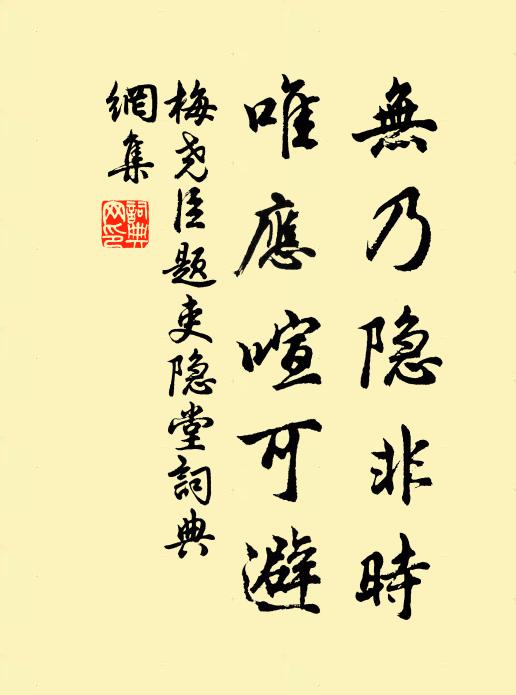 無乃隐非時
唯應喧可避
梅尧臣题吏隐堂詞典
網集
詞典网印